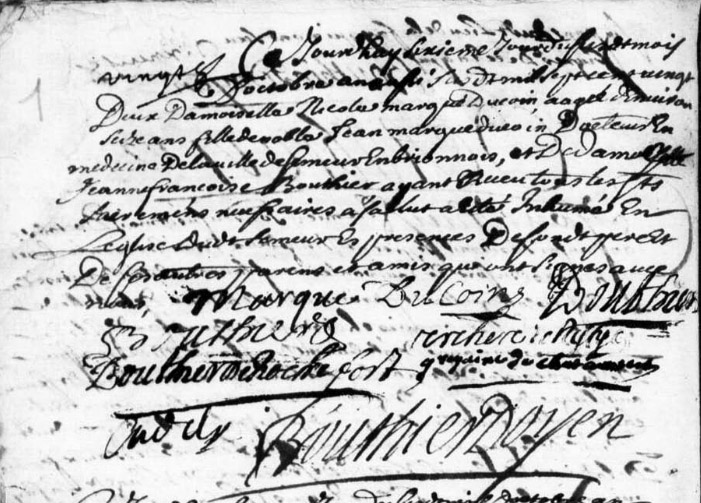 Ce Jourdhuy sixieme Jour du susdt mois
vingt
d'octobre an susdt mil sept cent vingt
Deux Damoiselle Nicole marque Ducoin, aagée d'Environ
seize ans fille de noble Jean marque ducoin Docteur En
medecine De la ville de Semeur En brionnois, et De dame
Jeanne francoise Bouthier ayant Receu tous les sts
sacremens necessaires a salut a esté Inhumée En
L'eglise dudt Semeur Es presences De sondt pere Et
De ses autres parens et amis qui ont signes avec
nous, Marque Du Coing Bouthier
Bouthier
Bouthier de Rochefort
Bouthier Doyen